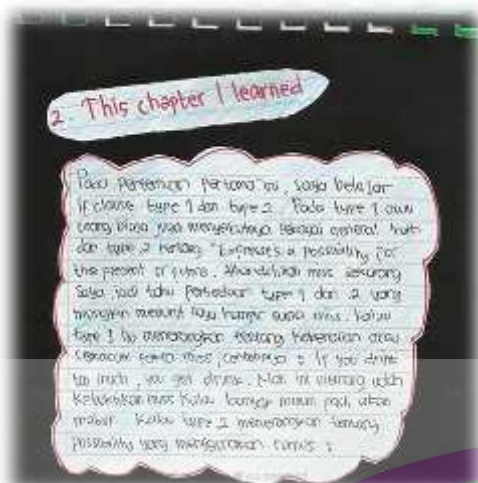 2. This chapter I learned
Pada pertemuan pertama ini, saya belajar
if clause type 1 dan type 2. Pada type 1 atau
orang biasa juga menyebutnya sebagai general truth
dan type 2 tentang "Expresses a possibility for
the present or future. miss sekarang
saya jadi tahu perbedaan type 1 dan 2 yang
mungkin menurut saya hampir sama miss. Kalau
type 1 itu menerangkan tentang kebenaran atau
fakta miss, contohnya : If you drink
too much, you get drunk. Nah ini memang udah
miss kalau banyak minum pasti akan
mabuk. Kalau type 2 menerangkan tentang
possibility yang menggunakan rumus :